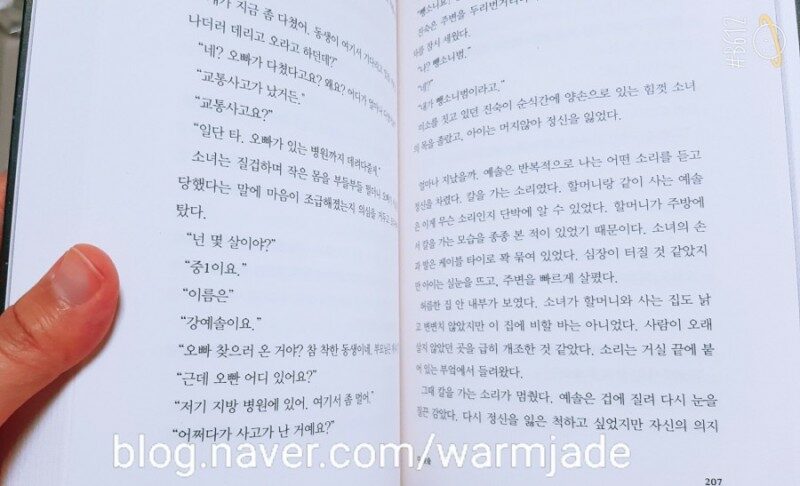 가 지금 좀 다쳤어. 동생이 여기서
나더러 데리고 오라고 하던데?"
"네? 오빠가 다쳤다고요? 왜요? 어디가
"교통사고가 났거든."
"교통사고요?"
"일단 타. 오빠가 있는 병원까지 데려다줄게."
소녀는 질겁하며 작은 몸을 부들부들
당했다는 말에 마음이 조급해졌는지 의심을
탔다.
"넌 몇 살이야?"
"중1이요."
"이름은"
"강예솔이요."
"오빠 찾으러 온 거야? 참 착한 동생이네.
"근데 오빤 어디 있어요?"
"저기 지방 병원에 있어. 여기서 좀 멀어."
"어쩌다가 사고가 난 거예요?"
"뺑소니요?
진숙은, 주변을
차를 잠시 세웠다.
"나? 뺑소니범."
"네?"
"내가 뺑소니범이라고."
미소를 짓고 있던 진숙이 순식간에 양손으로 있는 힘껏 소녀
의 목을 졸랐고, 아이는 머지않아 정신을 잃었다.
얼마나 지났을까. 예솔은 반복적으로 나는 어떤 소리를 듣고
정신을 차렸다. 칼을 가는 소리였다. 할머니랑 같이 사는 예솔
은 이게 무슨 소리인지 단박에 알 수 있었다. 할머니가 주방에
서 칼을 가는 모습을 종종 본 적이 있었기 때문이다. 소녀의 손
과 발은 케이블 타이로 꽉 묶여 있었다. 심장이 터질 것 같았지
만 아이는 실눈을 뜨고, 주변을 빠르게 살폈다.
허름한 집 안 내부가 보였다. 소녀가 할머니와 사는 집도 낡
고 변변치 않았지만 이 집에 비할 바는 아니었다. 사람이 오래
살지 않았던 곳을 급히 개조한 것 같았다. 소리는 거실 끝에 붙
어 있는 부엌에서 들려왔다.
그때 칼을 가는 소리가 멈췄다. 예솔은 겁에 질려 다시 눈을
질끈 감았다. 다시 정신을 잃은 척하고 싶었지만 자신의 의지
207
#8612
blog.naver.com/warmjade